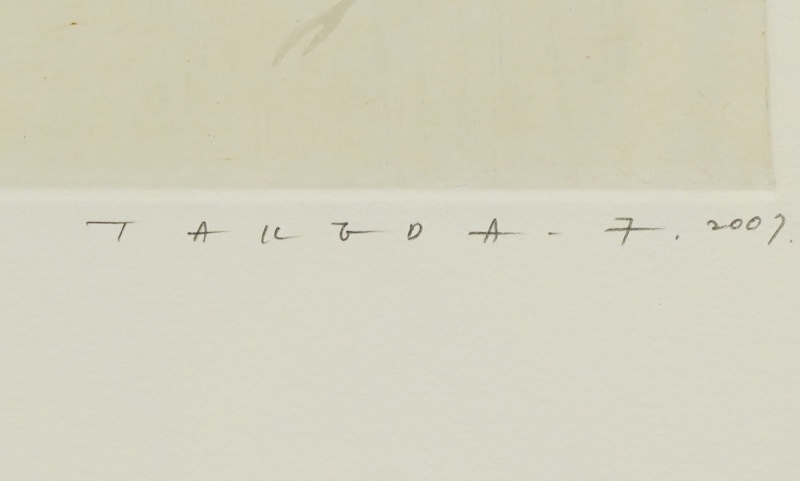 TAKEDA - F. 2007.